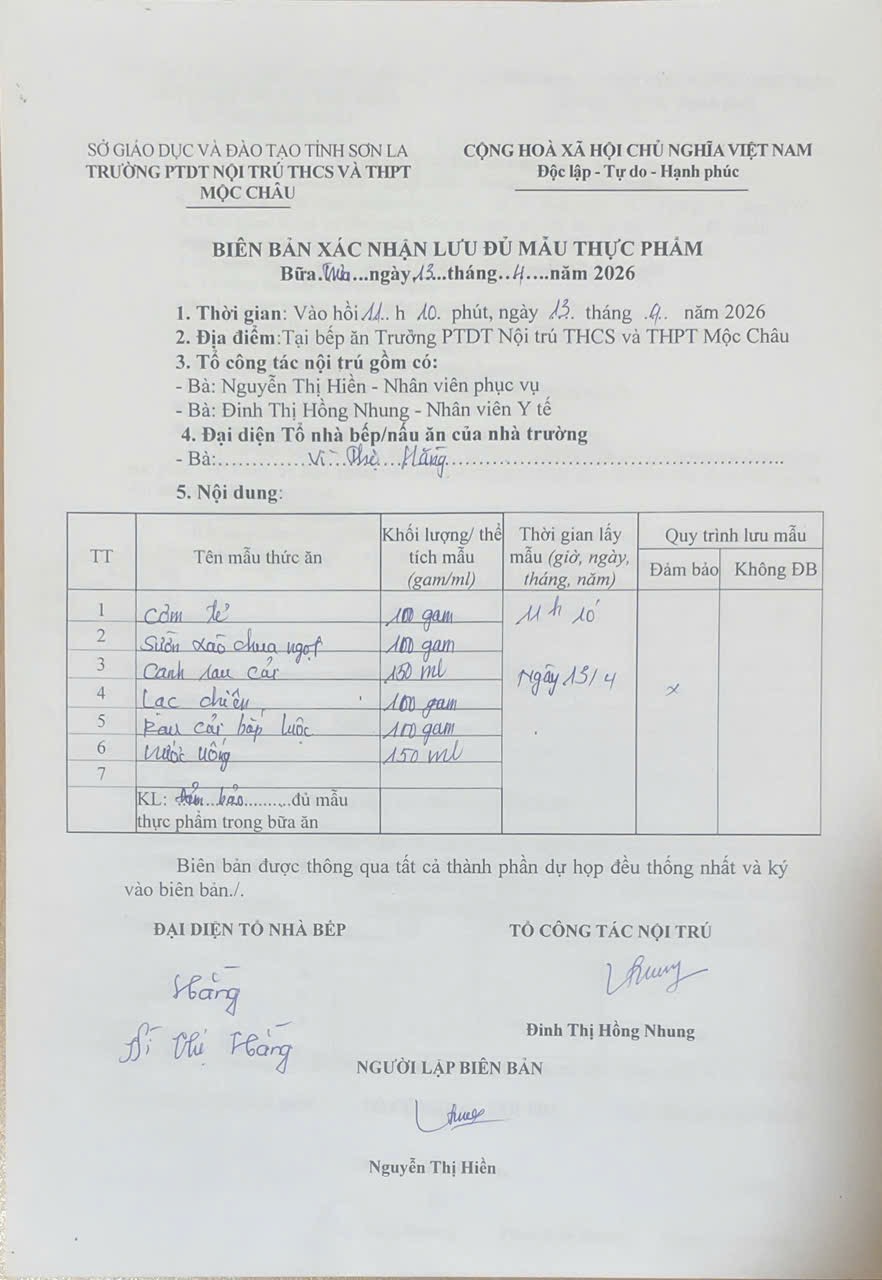 SỞ GIÁO DỤC VÀ ĐÀO TẠO TỈNH SƠN LA
TRƯỜNG PTDT NỘI TRÚ THCS VÀ THPT
MỘC CHÂU
CỘNG HOÀ XÃ HỘI CHỦ NGHĨA VIỆT NAM
Độc lập - Tự do - Hạnh phúc
BIÊN BẢN XÁC NHẬN LƯU ĐỦ MẪU THỰC PHẨM
Bữa.Trưa...ngày.13...tháng..4....năm 2026
1. Thời gian: Vào hồi 11.. h 10. phút, ngày 13. tháng .4.. năm 2026
2. Địa điểm:Tại bếp ăn Trưởng PTDT Nội trú THCS và THPT Mộc Châu
3. Tổ công tác nội trú gồm có:
- Bà: Nguyễn Thị Hiền - Nhân viên phục vụ
- Bà: Đinh Thị Hồng Nhung - Nhân viên Y tế
4. Đại diện Tổ nhà bếp/nấu ăn của nhà trường
- Bà:.............Vì...Thị...Hằng..................................................
5. Nội dung:
TT Tên mẫu thức ăn Khối lượng/ thể tích mẫu (gam/ml) Thời gian lấy mẫu (giờ, ngày, tháng, năm) Quy trình lưu mẫu
Đảm bảo Không ĐB
1 Cơm tẻ 100 gam 11 h 10
2 Sườn xào chua ngọt 100 gam
3 Canh rau cải 150 ml Ngày 13/4
4 Lạc chiên 100 gam x
5 Rau cải bắp luộc 100 gam
6 Nước uống 150 ml
7
KL: Đảm bảo..........đủ mẫu
thực phẩm trong bữa ăn
Biên bản được thông qua tất cả thành phần dự họp đều thống nhất và ký
vào biên bản./.
ĐẠI DIỆN TỔ NHÀ BẾP
TỔ CÔNG TÁC NỘI TRÚ
Hằng
Nhung
Vì Thị Hằng
Đinh Thị Hồng Nhung
NGƯỜI LẬP BIÊN BẢN
Nguyễn Thị Hiền